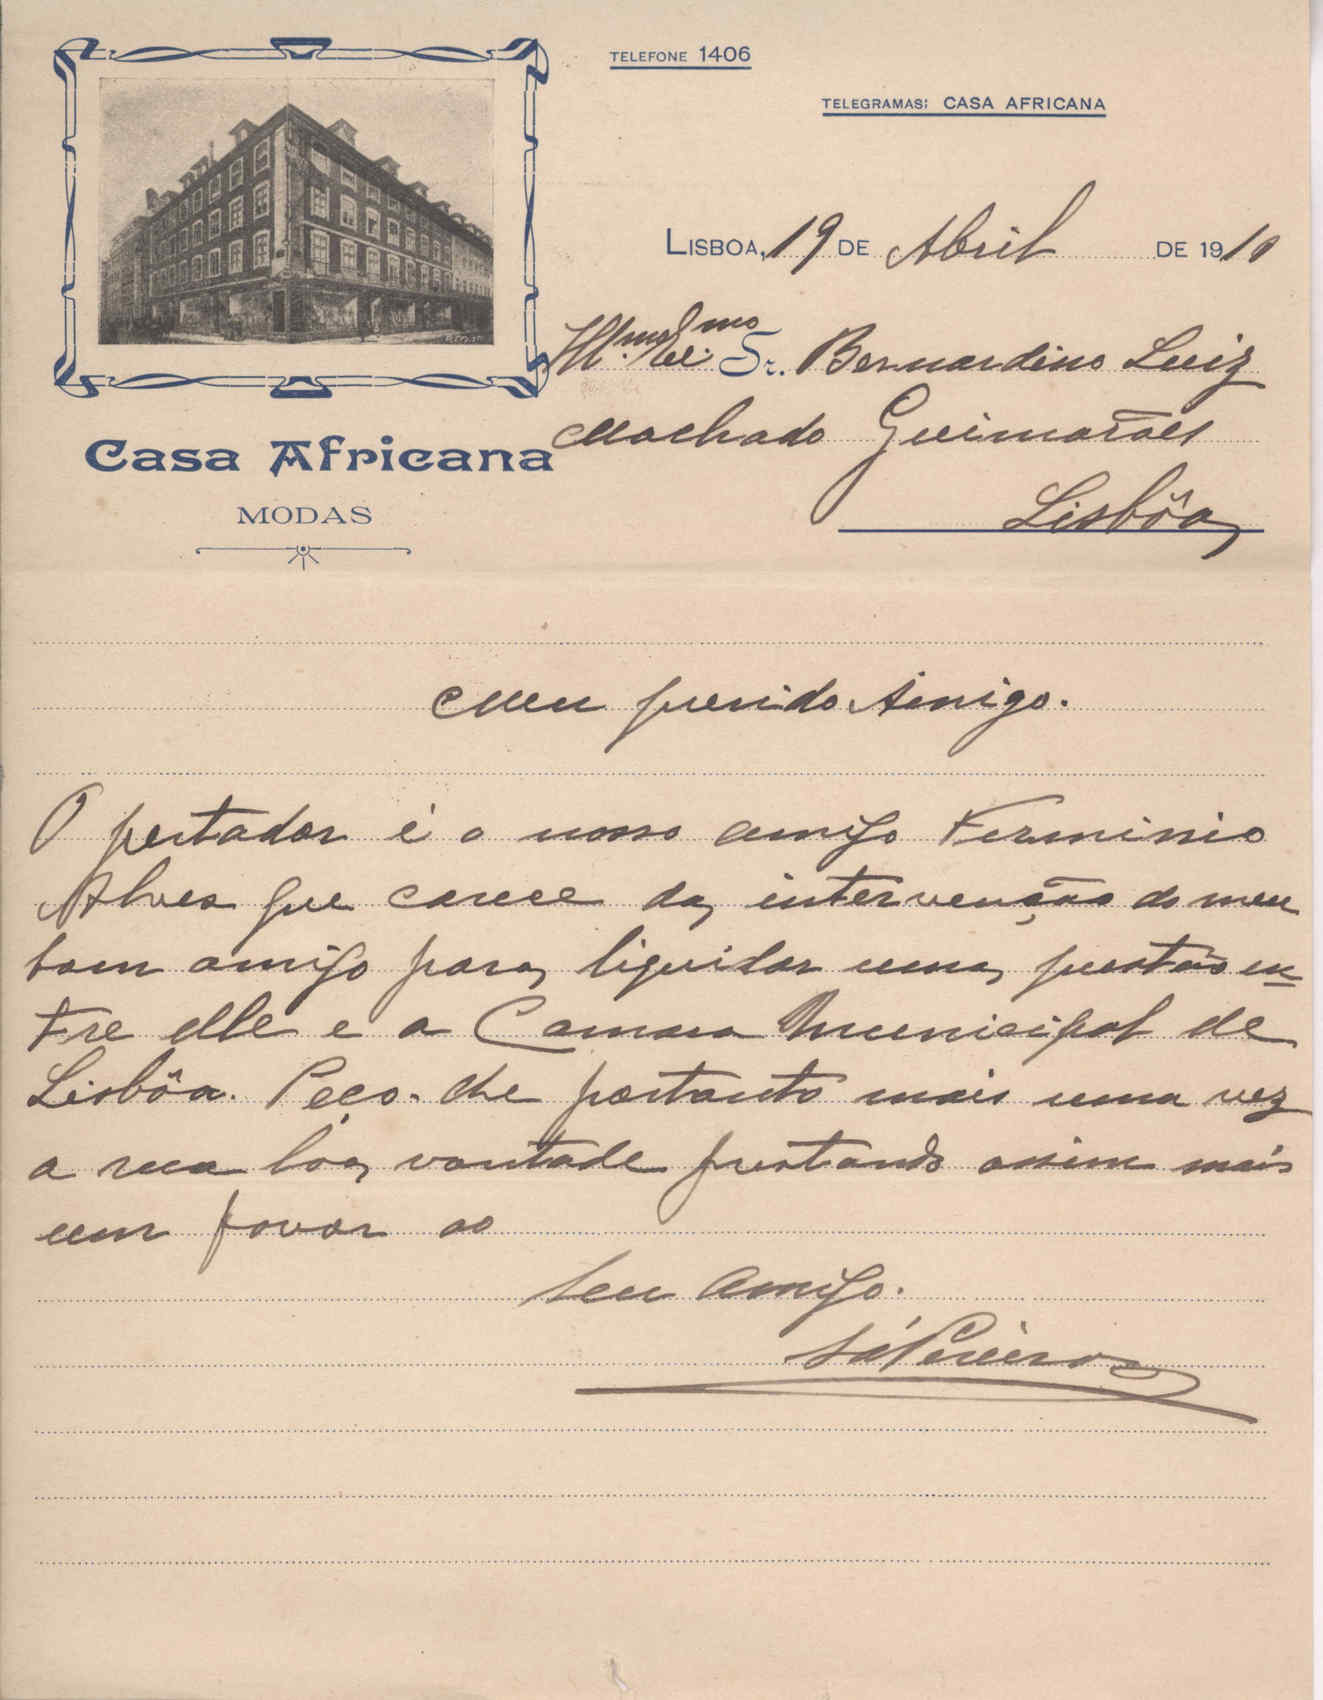 TELEFONE 1406
TELEGRAMAS: CASA AFRICANA
LISBOA, 19 DE Abril DE 1910
Ill.mo Ex.mo Sr. Bernardino Luiz
Machado Guimarães
Lisbôa
Casa Africana
MODAS
Meu querido Amigo.
O portador é o nosso amigo Ferminio
Alves que carece da intervenção do meu
bom amigo para liquidar uma questão en-
tre elle e a Camara Municipal de
Lisbôa. Peço-lhe portanto mais uma vez
a sua bôa vontade prestando assim mais
um favor ao
Seu amigo.
Sá Pereira